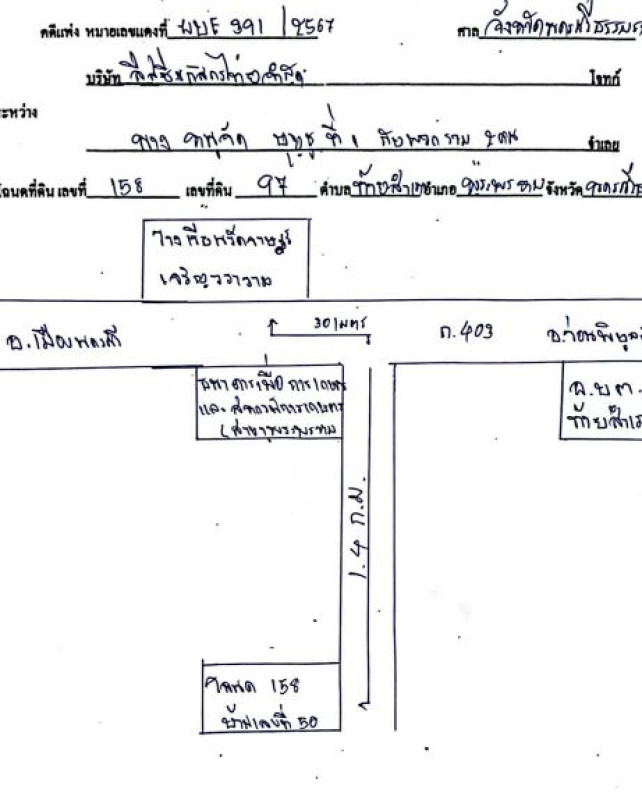 คดีแพ่ง หมายเลขแดงที่ ผบE 391 / 2567 ศาล จังหวัดนครศรีธรรมรา
บริษัท ลีสซิ่งกสิกรไทย จำกัด โจทก์
ระหว่าง
นาง ที่ 1 กับพวกรวม 2 คน จำเลย
โฉนดที่ดิน เลขที่ 158 เลขที่ดิน 97 ตำบล ท้ายสำเภา อำเภอ พระพรหม จังหวัด นครศรี
โรงเรียนวัดราษฎร์
เจริญวราราม
อ.เมืองนครศรี
30 เมตร
ถ.403
อ.ร่อนพิบูล
ธนาคารเพื่อการเกษตร
และสหกรณ์การเกษตร
(สาขาพระพรหม
อ.บ.ต.
ท้ายสำเภ
1.4 ก.ม.
โฉนด 158
บ้านเลขที่ 50